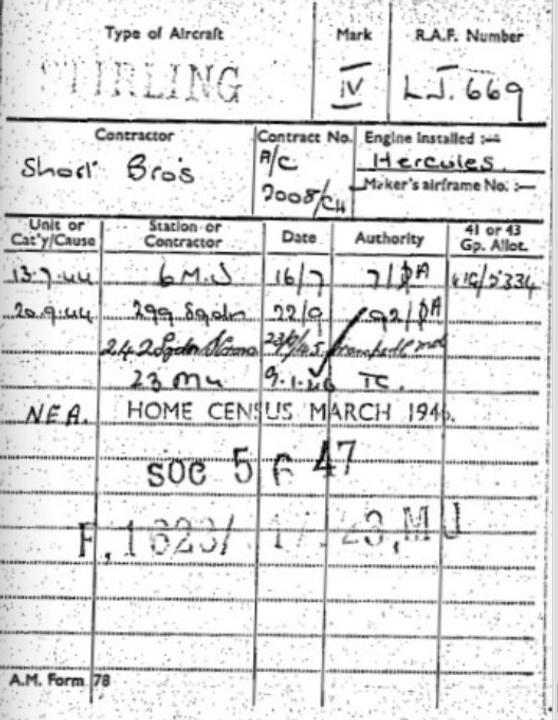 Type of Aircraft Mark R.A.F. Number
STIRLING IV LJ.669
Contractor Contract No. Engine Installed :—
Short Bros A/C Hercules
2008/CH Maker's airframe No. :—
Unit or Cat'y/Cause Station or Contractor Date Authority 41 or 43 Gp. Allot.
13.7.44 6 M.U 16/7 7/DA 41G/5334
20.9.44 299 Sqdn 22/9 92/DA
242 Sqdn
23 MU 9.1.46 TC.
NEA. HOME CENSUS MARCH 1946.
SOC 5 6 47
F.1623/ 17. 23.MU
A.M. Form 78